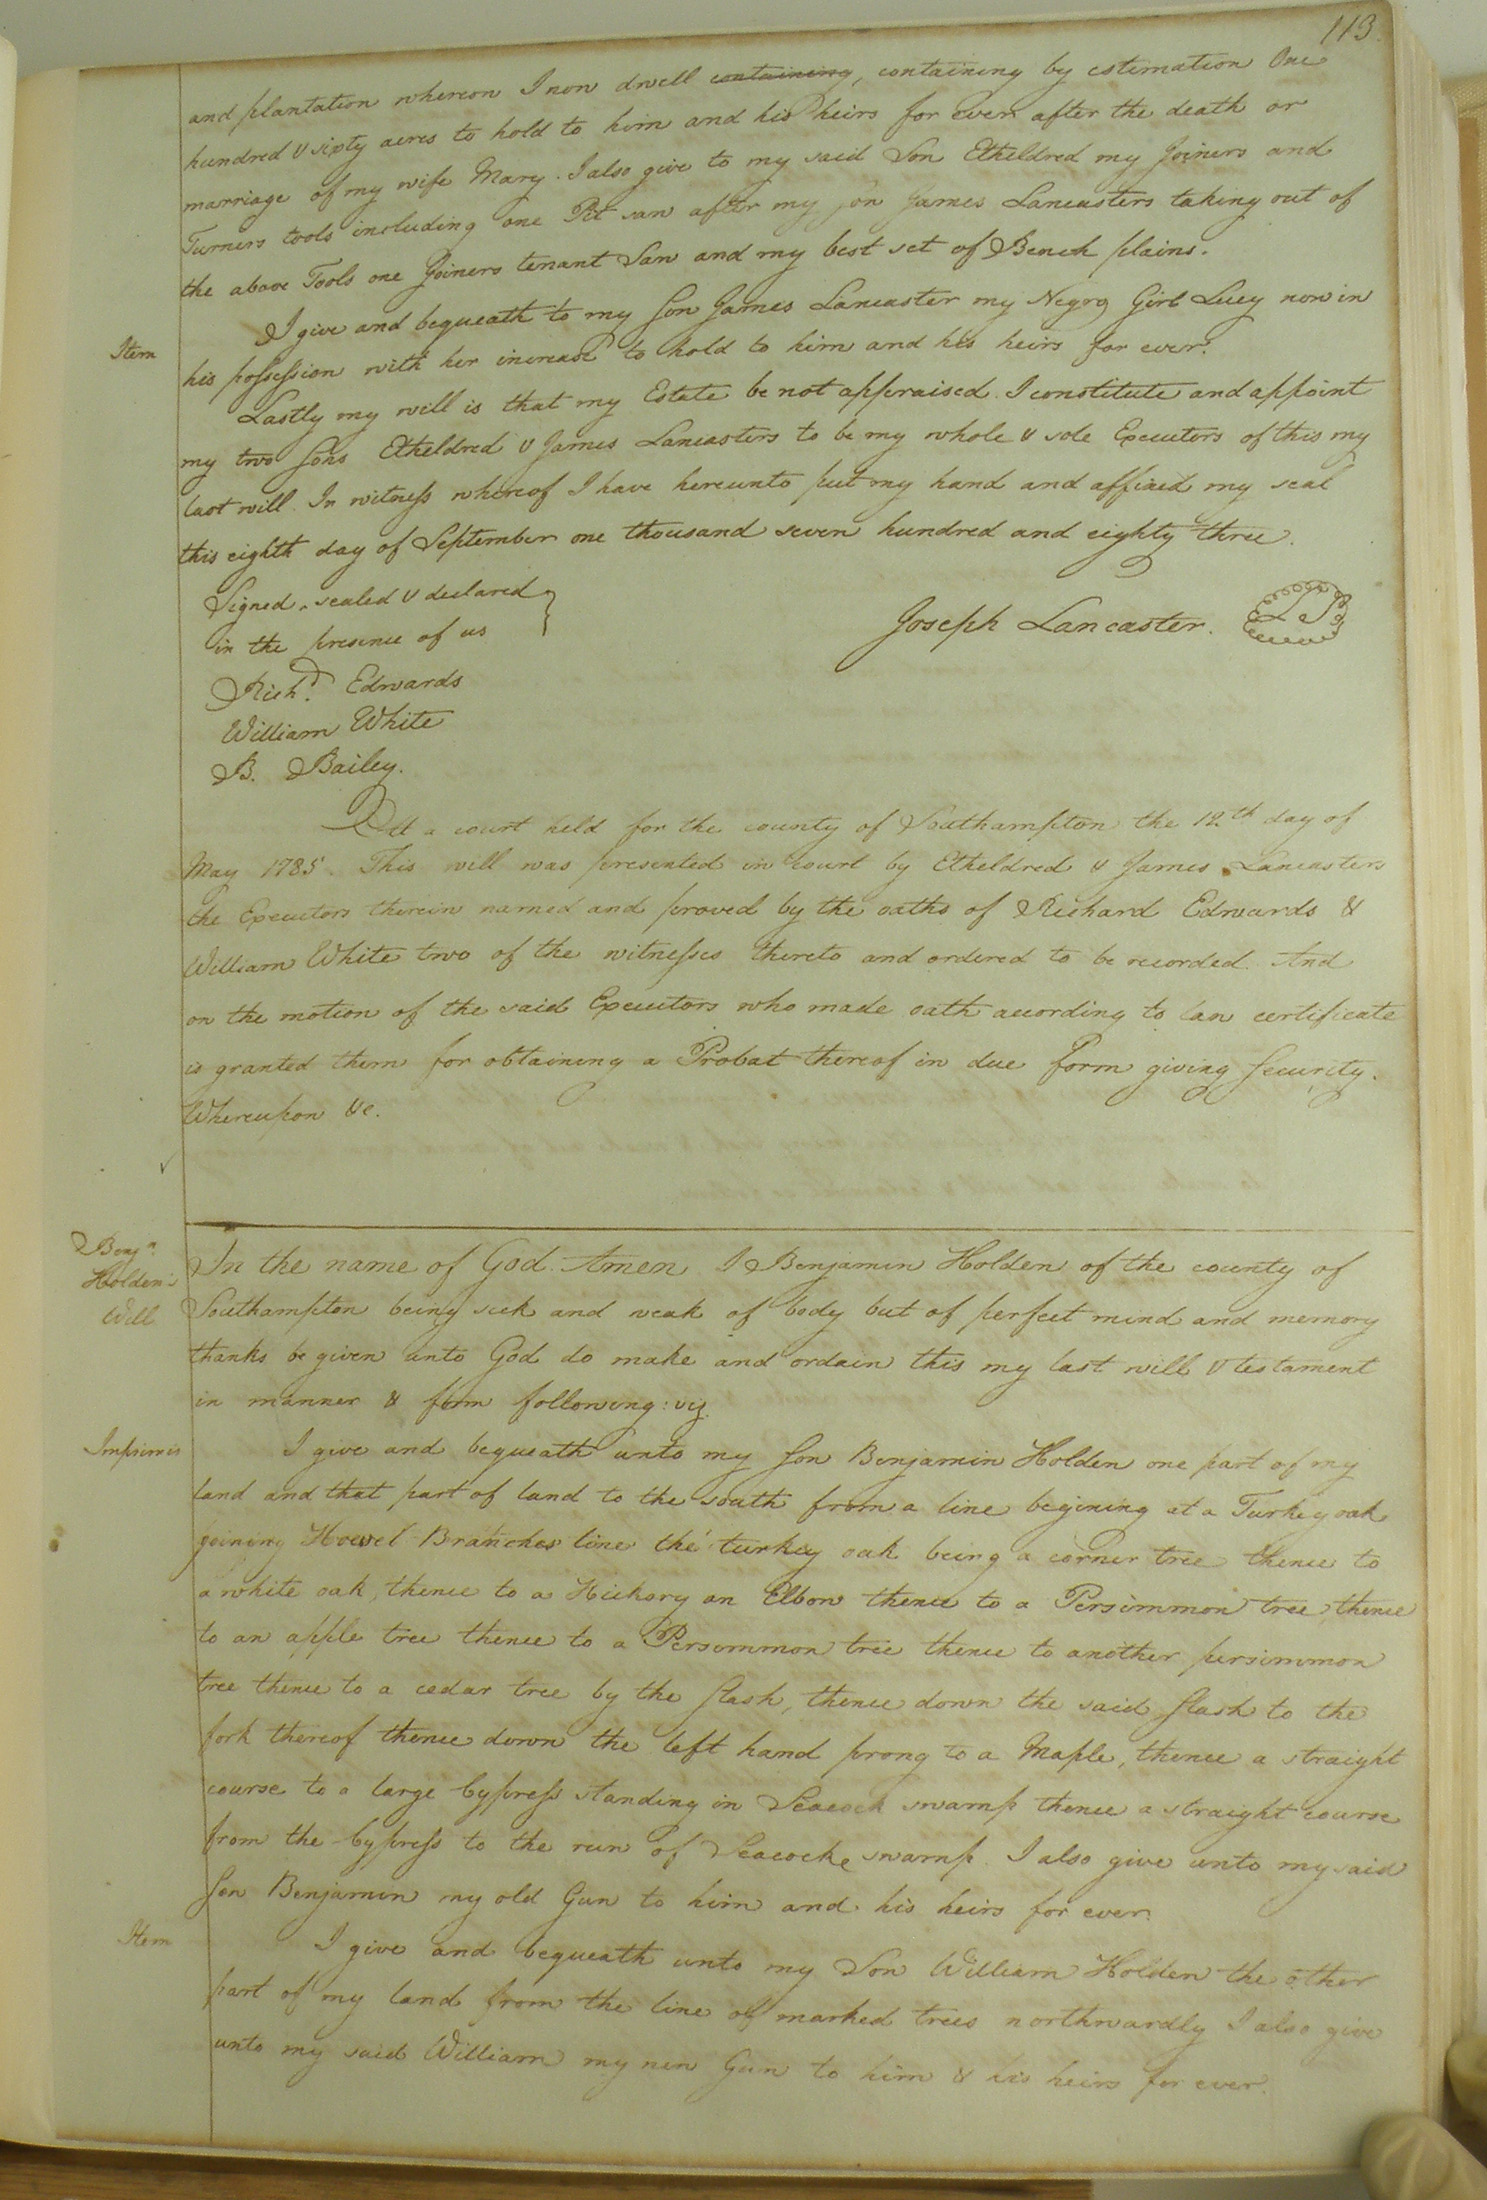 113.
and plantation whereon I now dwell containing, containing by estimation One
hundred & sixty acres to hold to him and his heirs for ever after the death or
marriage of my wife Mary. I also give to my said Son Etheldred my Joiners and
Turners tools including one Pit saw after my son James Lancasters taking out of
the above Tools one Joiners tenant Saw and my best set of Bench plains.
Item I give and bequeath to my Son James Lancaster my Negro Girl Lucy now in
his possession with her increase to hold to him and his heirs for ever.
Lastly my will is that my Estate be not appraised. I constitute and appoint
my two Sons Etheldred & James Lancasters to be my whole & sole Executors of this my
last will. In witness whereof I have hereunto put my hand and affixed my seal
this eighth day of September one thousand seven hundred and eighty three.
Signed, sealed & declared
in the presence of us
Joseph Lancaster. LS
Richd. Edwards
William White
B. Bailey.
At a court held for the county of Southampton the 12th day of
May 1785. This will was presented in court by Etheldred & James Lancasters
the Executors therein named and proved by the oaths of Richard Edwards &
William White two of the witnesses thereto and ordered to be recorded. And
on the motion of the said Executors who made oath according to law certificate
is granted them for obtaining a Probat thereof in due form giving Security.
Whereupon &c.
Benjn.
Holden's
Will
In the name of God Amen I Benjamin Holden of the county of
Southampton being sick and weak of body but of perfect mind and memory
thanks be given unto God do make and ordain this my last will & testament
in manner & form following: viz.
Imprimis I give and bequeath unto my Son Benjamin Holden one part of my
land and that part of land to the south from a line begining at a Turkey oak
joining Howel Branches line the turkey oak being a corner tree thence to
a white oak, thence to a Hickory an Elbow thence to a Persimmon tree, thence
to an apple tree thence to a Persimmon tree thence to another persimmon
tree thence to a cedar tree by the slash, thence down the said slash to the
fork thereof thence down the left hand prong to a Maple, thence a straight
course to a large Cypress standing in Seacock swamp thence a straight course
from the Cypress to the run of Seacocke swamp. I also give unto my said
Son Benjamin my old Gun to him and his heirs for ever.
Item I give and bequeath unto my Son William Holden the other
part of my land from the line of marked trees northwardly I also give
unto my said William my new Gun to him & his heirs for ever.